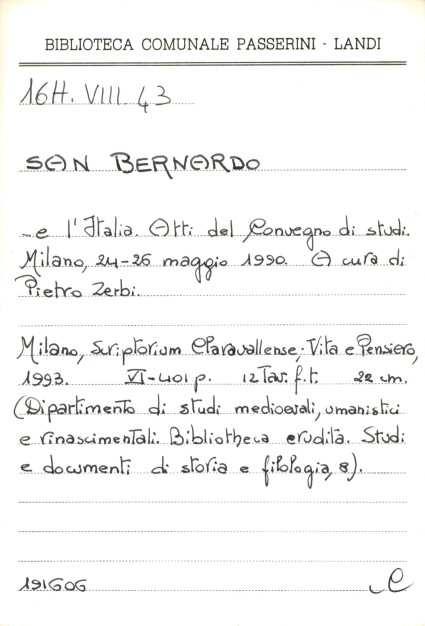 BIBLIOTECA COMUNALE PASSERINI - LANDI
16H. VIII. 43
SAN BERNARDO
- e l'Italia. Atti del Convegno di studi.
Milano, 24-26 maggio 1990. A cura di
Pietro Zerbi.
Milano, Scriptorium Claravallense; Vita e Pensiero,
1993. VI-401 p. 12 Tav. f.t. 22 cm.
(Dipartimento di studi medioevali, umanistici
e rinascimentali. Bibliotheca erudita. Studi
e documenti di storia e filologia, 8).
191606 C